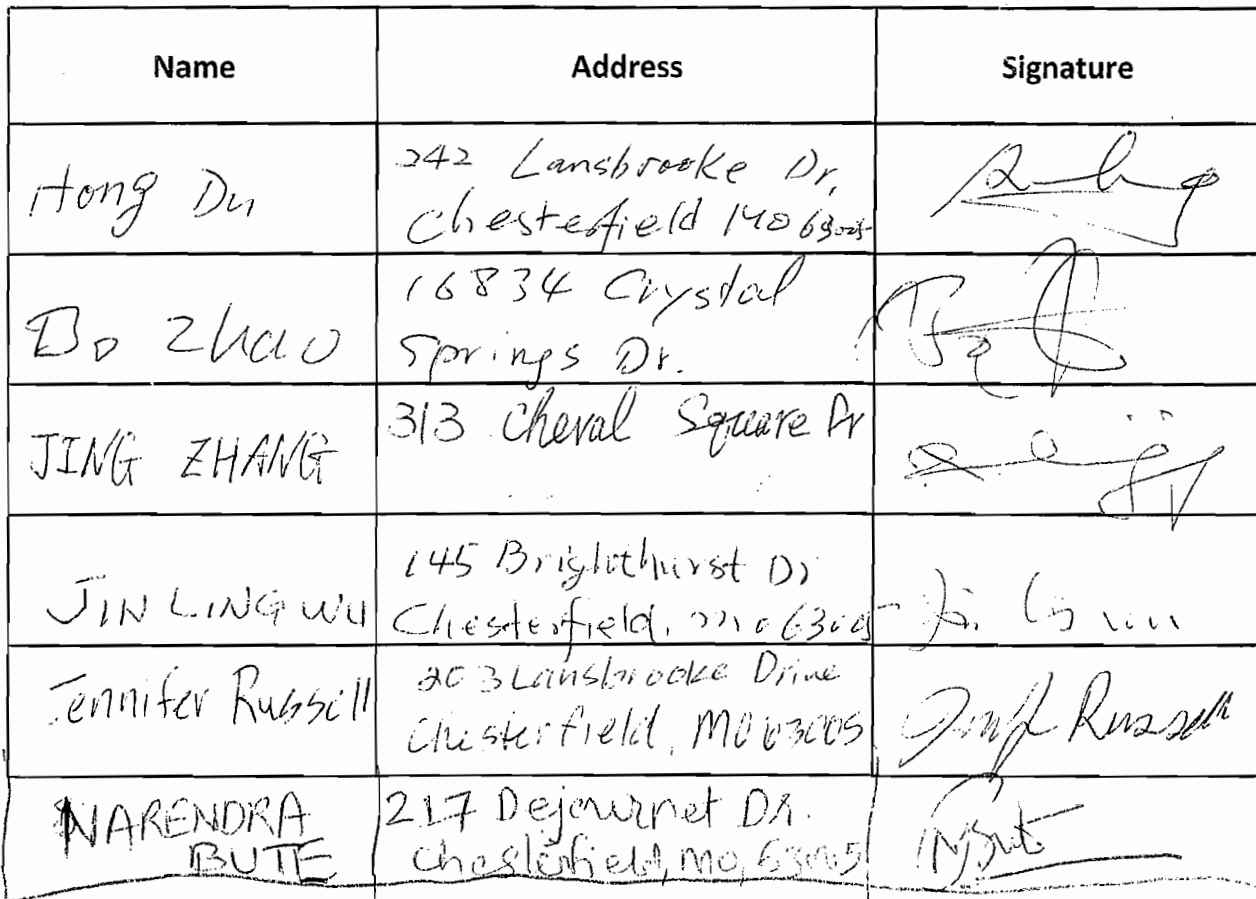 Name Address Signature
Hong Du
242 Lansbrooke Dr,
Chesterfield MO 63005
Bo Zhao
16834 Crystal
Springs Dr.
JING ZHANG
313 Cheval Square Dr
JIN LING WU
145 Brighthurst Dr
Chesterfield, mo 63005
Jennifer Russell
203 Lansbrooke Drive
Chesterfield, MO 63005
Russell
NARENDRA
BUTE
217 Dejournet Dr.
Chesterfield, MO, 63005
NBute